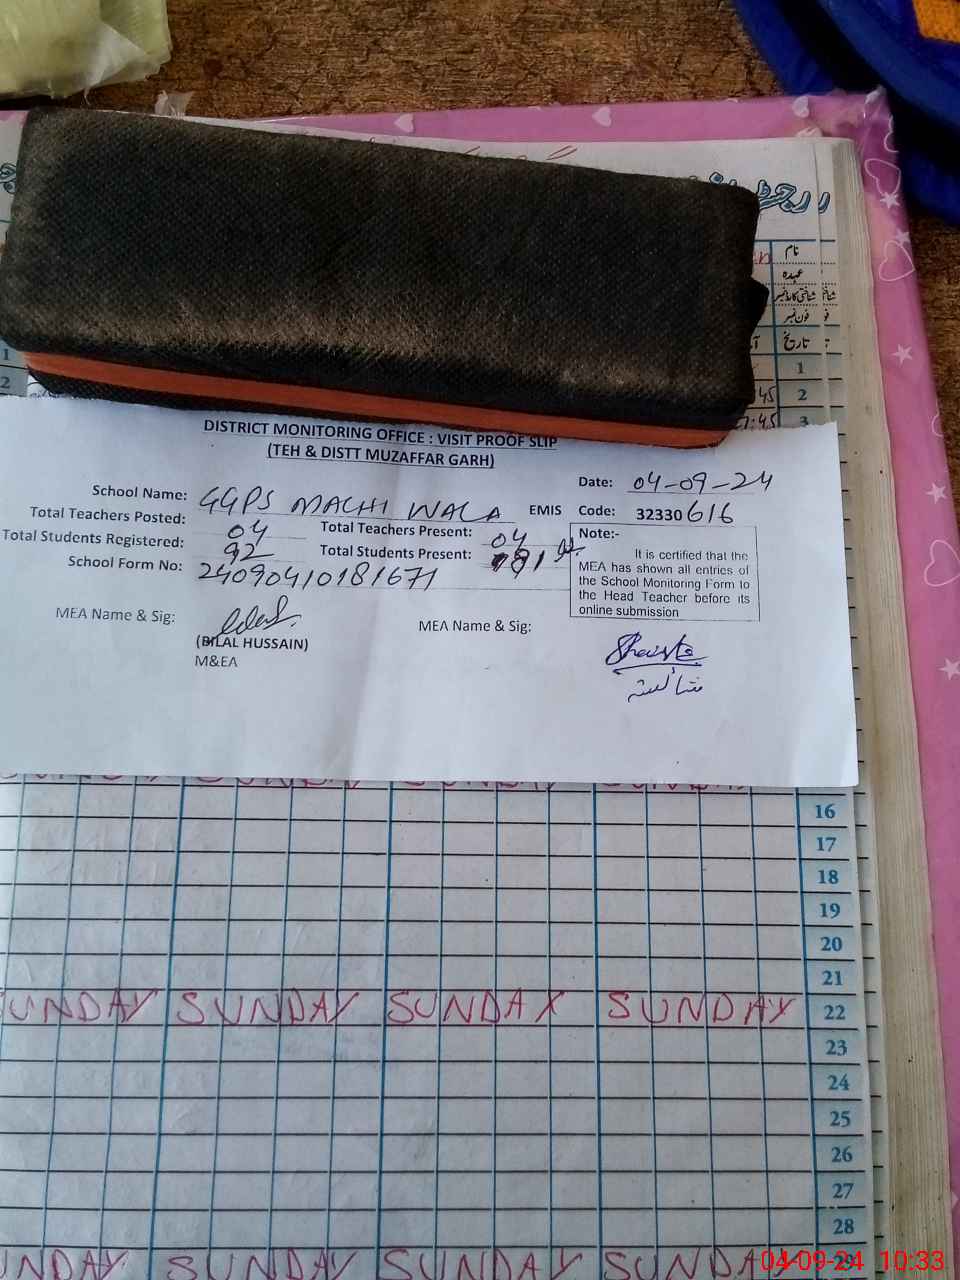 رجسٹر
نام
عہدہ
شناختی کارڈ نمبر
فون نمبر
تاریخ
1
1
2
2
:45
3
7:45
DISTRICT MONITORING OFFICE : VISIT PROOF SLIP
(TEH & DISTT MUZAFFAR GARH)
Date: 04-09-24
School Name: GGPS MACHI WALA EMIS Code: 32330616
Total Teachers Posted: 04 Total Teachers Present: 04
Total Students Registered: 92 Total Students Present: 81
School Form No: 24090410181671
Note:-
It is certified that the
MEA has shown all entries of
the School Monitoring Form to
the Head Teacher before its
online submission
MEA Name & Sig: MEA Name & Sig:
(BILAL HUSSAIN)
M&EA
Shaista
شائستہ
16
17
18
19
20
21
SUNDAY SUNDAY SUNDAY SUNDAY 22
23
24
25
26
27
28
SUNDAY SUNDAY SUNDAY SUNDAY 29
04-09-24 10:33